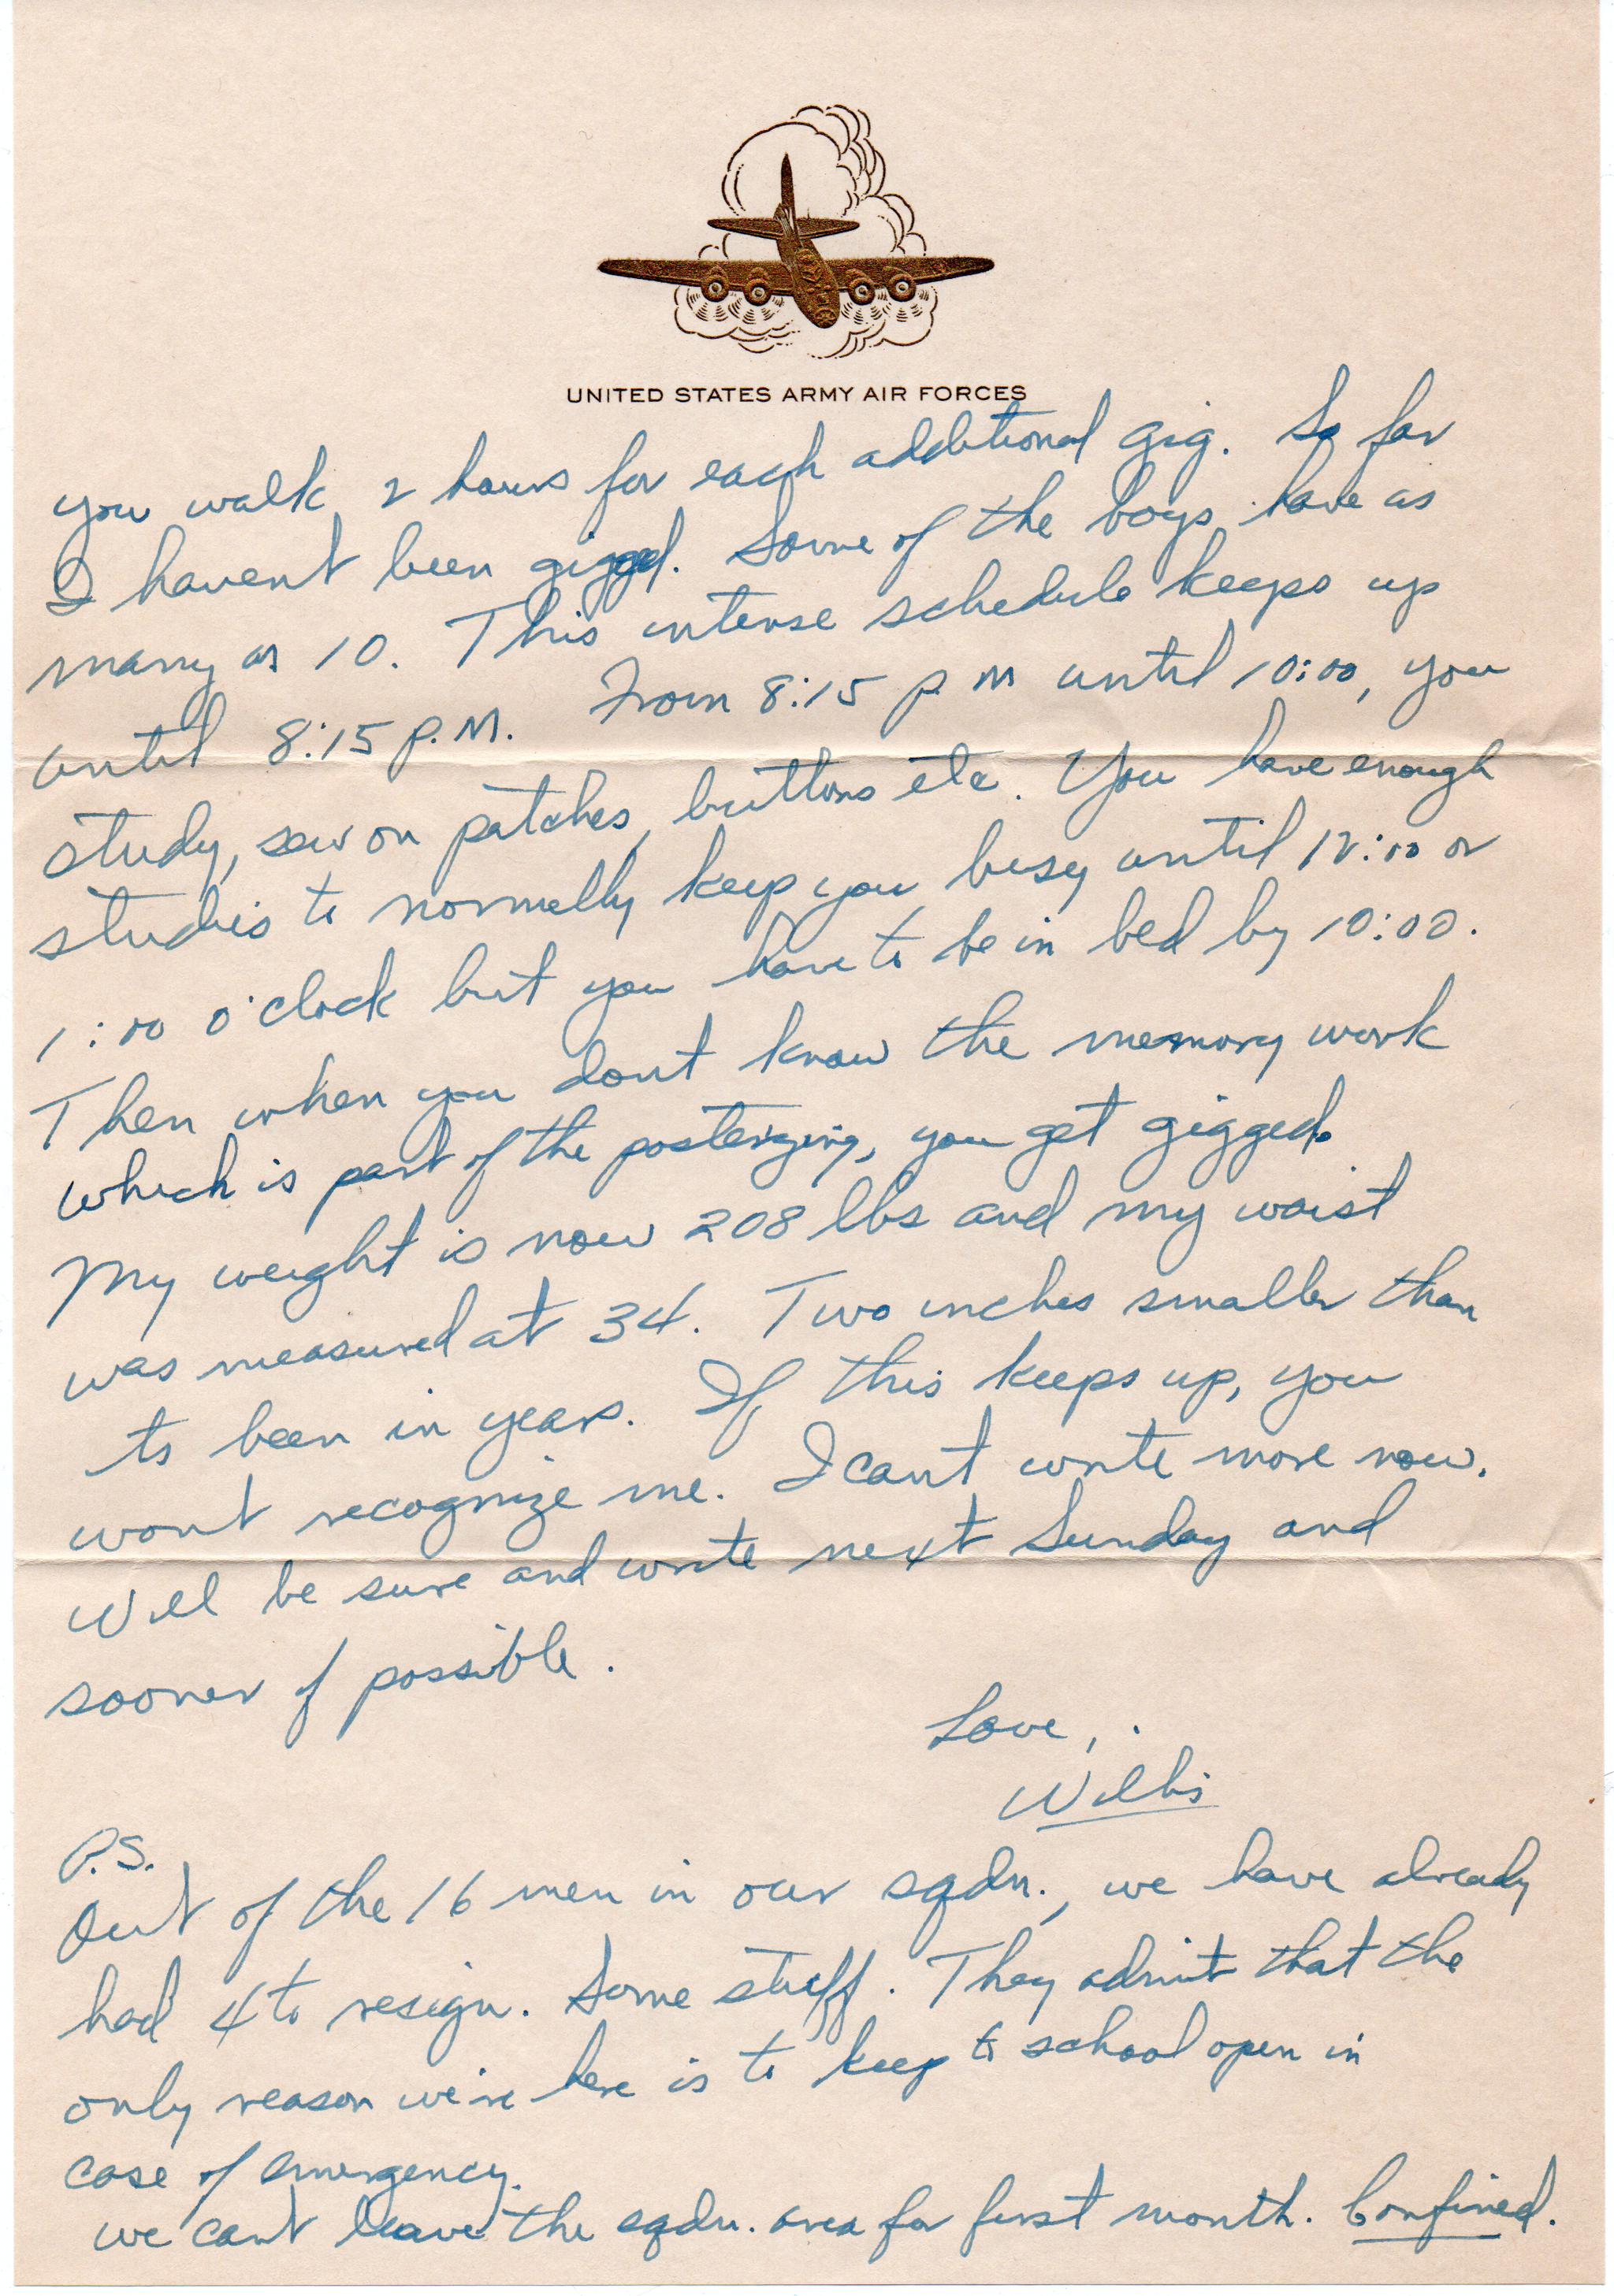 UNITED STATES ARMY AIR FORCES
you walk 2 hours for each additional gig. So far
I havent been gigged. Some of the boys have as
many as 10. This intense schedule keeps up
until 8:15 p.m. From 8:15 p m until 10:00, you
study, sew on patches, buttons etc. You have enough
studies to normally keep you busy until 12:00 or
1:00 o'clock but you have to be in bed by 10:00.
Then when you dont know the memory work
which is part of the you get gigged.
My weight is now 208 lbs and my waist
was measured at 34. Two inches smaller than
ts been in years. If this keeps up, you
wont recognize me. I cant write more now.
Will be sure and write next Sunday and
sooner if possible.
Love,
Willis
P.S.
Out of the 16 men in our sqdn., we have already
had 4 to resign. Some stuff. They admit that the
only reason we're here is to keep t school open in
case of emergency.
we cant leave the sqdn. area for first month. Confined.